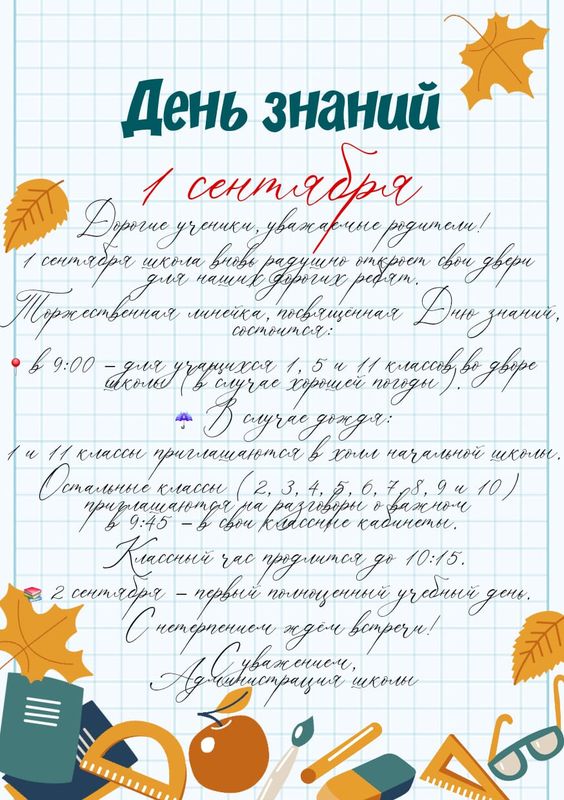 День знаний
1 сентября
Дорогие ученики, уважаемые родители!
1 сентября школа вновь радушно откроет свои двери
для наших дорогих ребят.
Торжественная линейка, посвящённая Дню знаний,
состоится:
📍 в 9:00 – для учащихся 1, 5 и 11 классов во дворе
школы (в случае хорошей погоды).
☔ В случае дождя:
1 и 11 классы приглашаются в холл начальной школы.
Остальные классы (2, 3, 4, 5, 6, 7, 8, 9 и 10)
приглашаются на разговоры о важном
в 9:45 – в свои классные кабинеты.
Классный час продлится до 10:15.
📚 2 сентября – первый полноценный учебный день.
С нетерпением ждём встречи!
С уважением,
Администрация школы